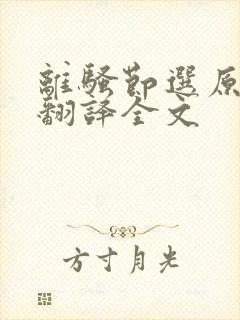 離騷節選原
翻譯全文
方寸月光